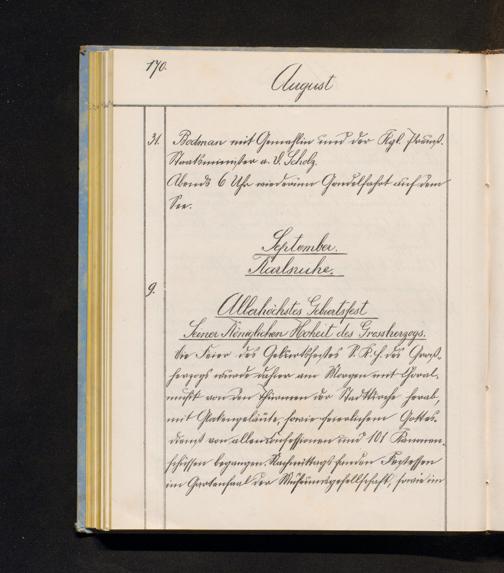 170.
August
31. Bodman mit Gemahlin und der Kgl. Preuß.
Staatsminister a. D. Scholz.
Abends 6 Uhr wiederum Gondelfahrt auf dem
See.
September.
Karlsruhe.
9.
Allerhöchstes Geburtsfest
Seiner Königlichen Hoheit des Grossherzogs.
Die Feier des Geburtsfestes S. K. H. des Groß-
herzogs wurde am Morgen mit Choral-
musik von den Thürmen der Stadtkirche herab,
mit Glockengeläute, sowie feierlichem Gottes-
dienst von allen Confessionen und 101 Kanonen-
schüssen begangen. Nachmittags fanden Festessen
im Gartensaal der Museumsgesellschaft, sowie im